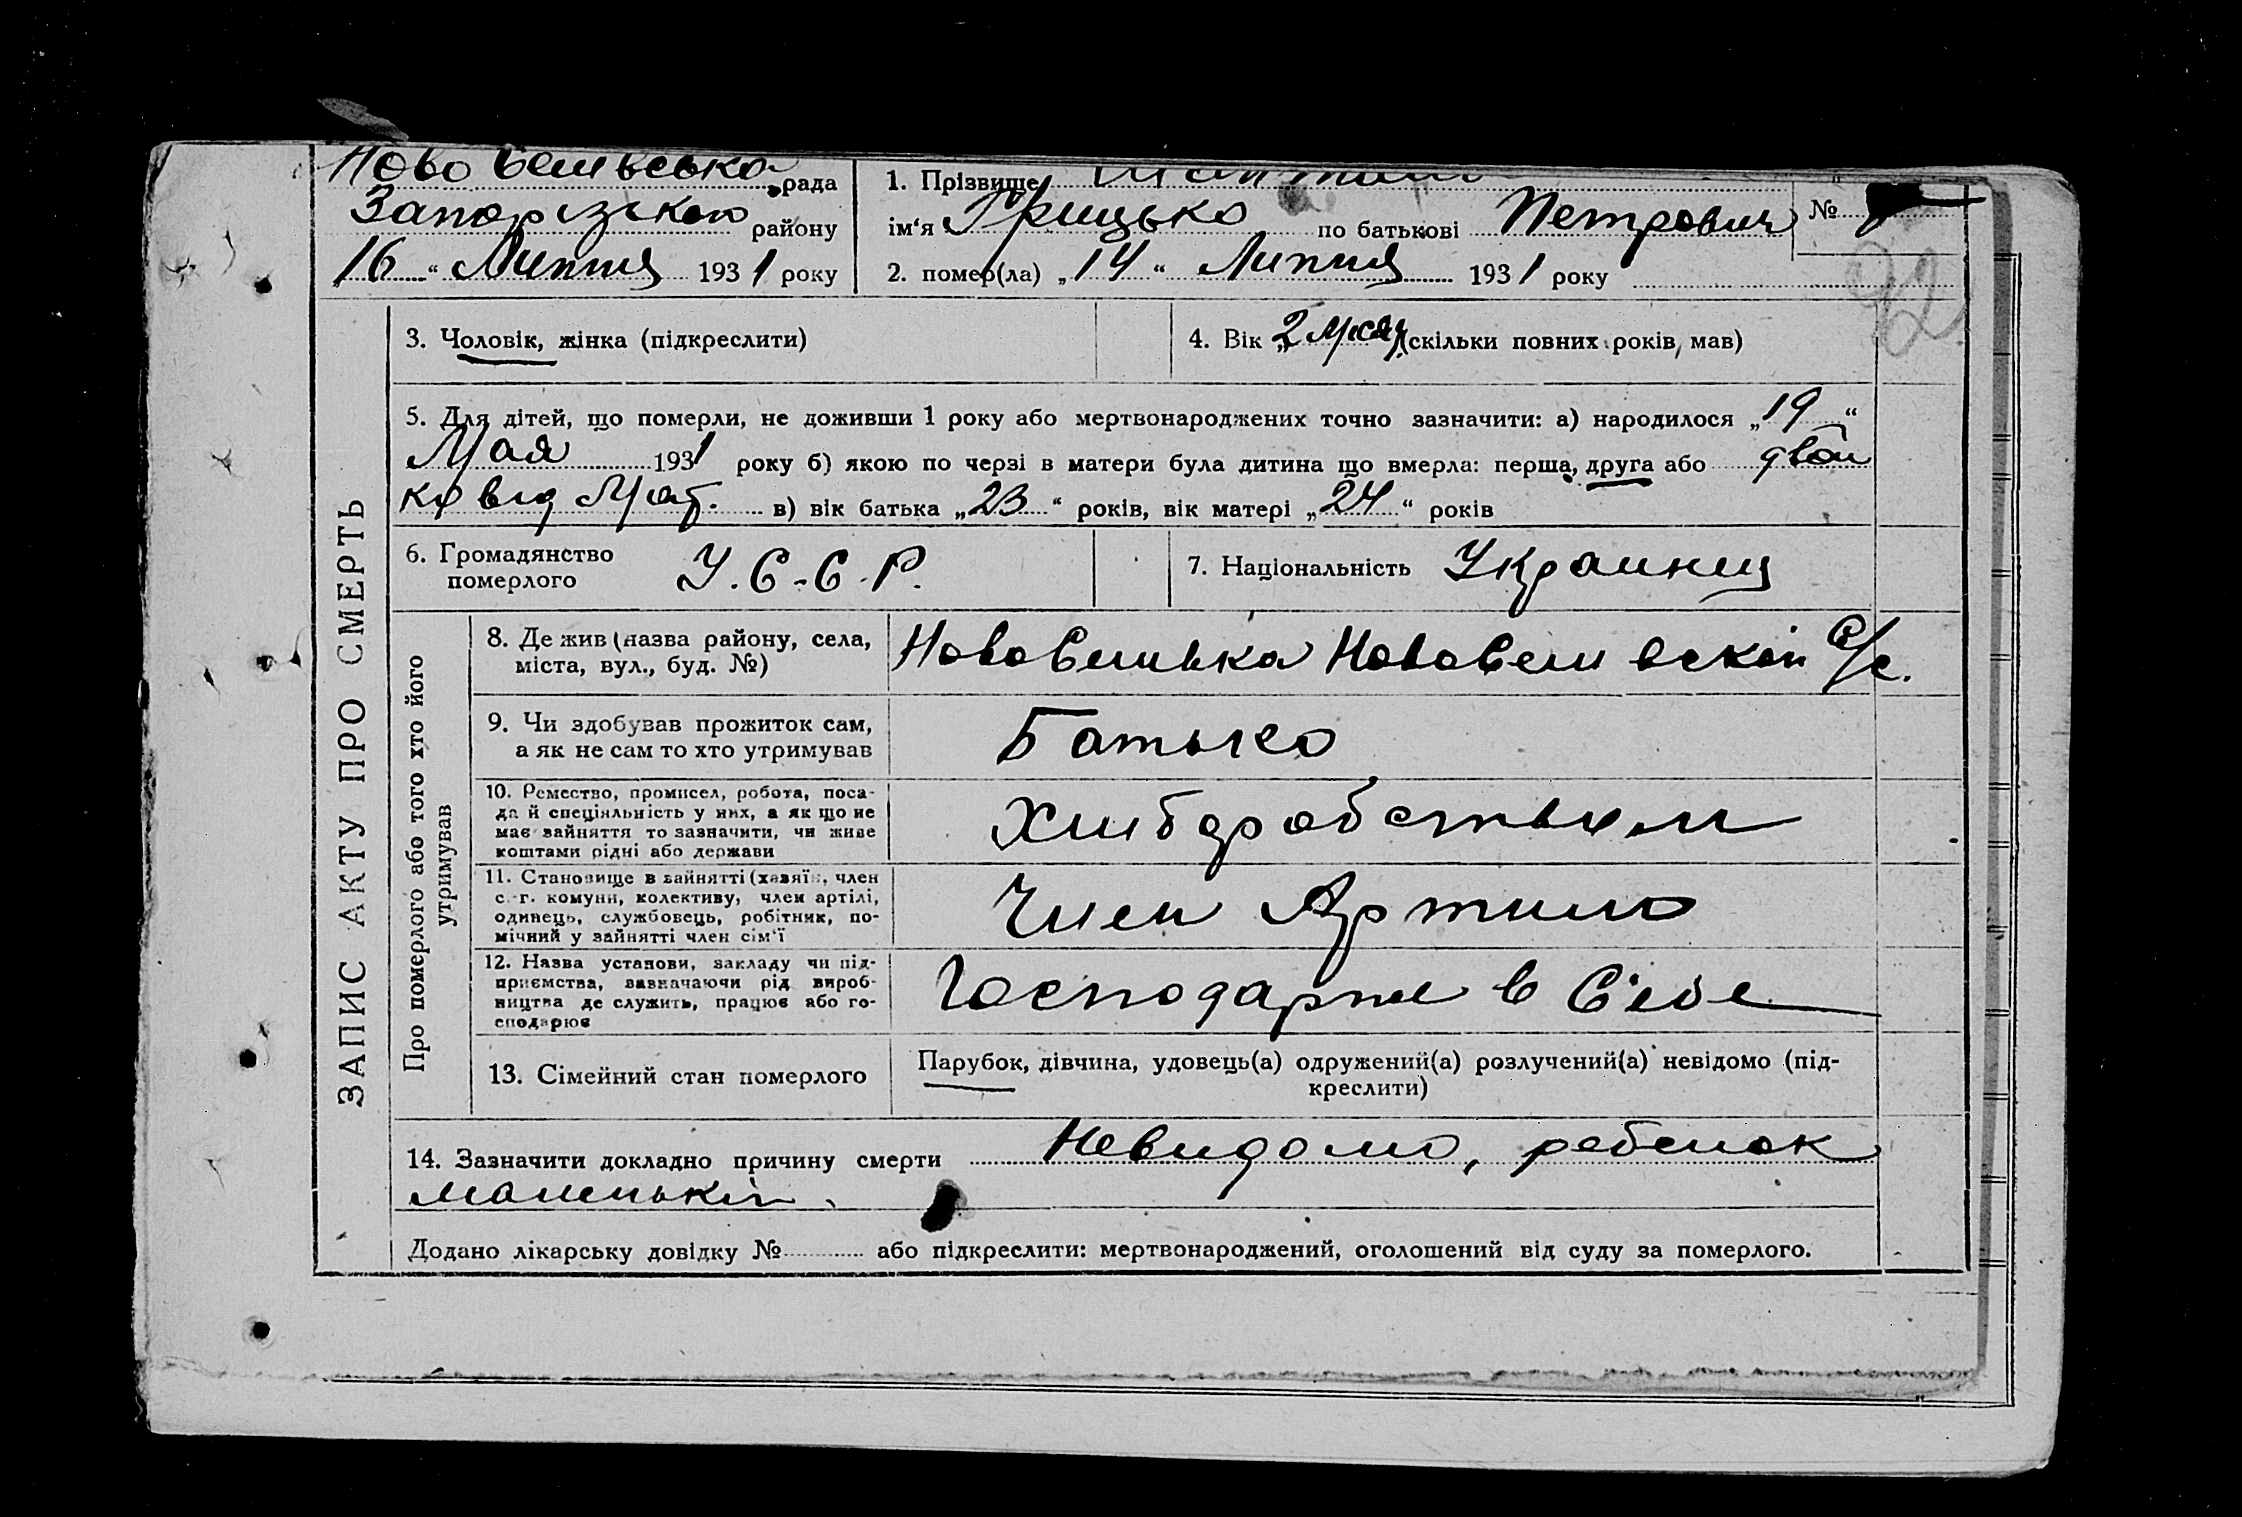 рада
Запорізького району
16 “ Липня 1931 року
1. Прізвище
ім‘я Грицько по батькові Петрович №
2. помер(ла) „14“ Липня 1931 року
92
ЗАПИС АКТУ ПРО СМЕРТЬ
3. Чоловік, жінка (підкреслити)
4. Вік „2 мсяц. (скільки повних років, мав)
5. Для дітей, що померли, не доживши 1 року або мертвонароджених точно зазначити: а) народилося „19“
Мая 1931 року б) якою по черзі в матери була дитина що вмерла: перша, друга або двой
ко від Мат. в) вік батька „23“ років, вік матері „24“ років
6. Громадянство
померлого У.С.С.Р.
7. Національність Украинец
Про померлого або того хто його
утримував
8. Де жив (назва району, села,
міста, вул., буд. №)
с/с.
9. Чи здобував прожиток сам,
а як не сам то хто утримував
Батько
10. Ремество, промисел, робота, поса-
да й спеціяльність у них, а як що не
має зайняття то зазначити, чи живе
коштами рідні або держави
Хлібдробством
11. Становище в зайнятті (хазяїн, член
с.-г. комуни, колективу, член артілі,
одинець, службовець, робітник, по-
мічний у зайнятті член сім‘ї
Член Артило
12. Назва установи, закладу чи під-
приємства, зазначаючи рід вироб-
ництва де служить, працює або го-
сподарює
Господарює в Себе
13. Сімейний стан померлого
Парубок, дівчина, удовець(а) одружений(а) розлучений(а) невідомо (під-
креслити)
14. Зазначити докладно причину смерти Невидомо, ребенок
маленькій.
Додано лікарську довідку № або підкреслити: мертвонароджений, оголошений від суду за померлого.